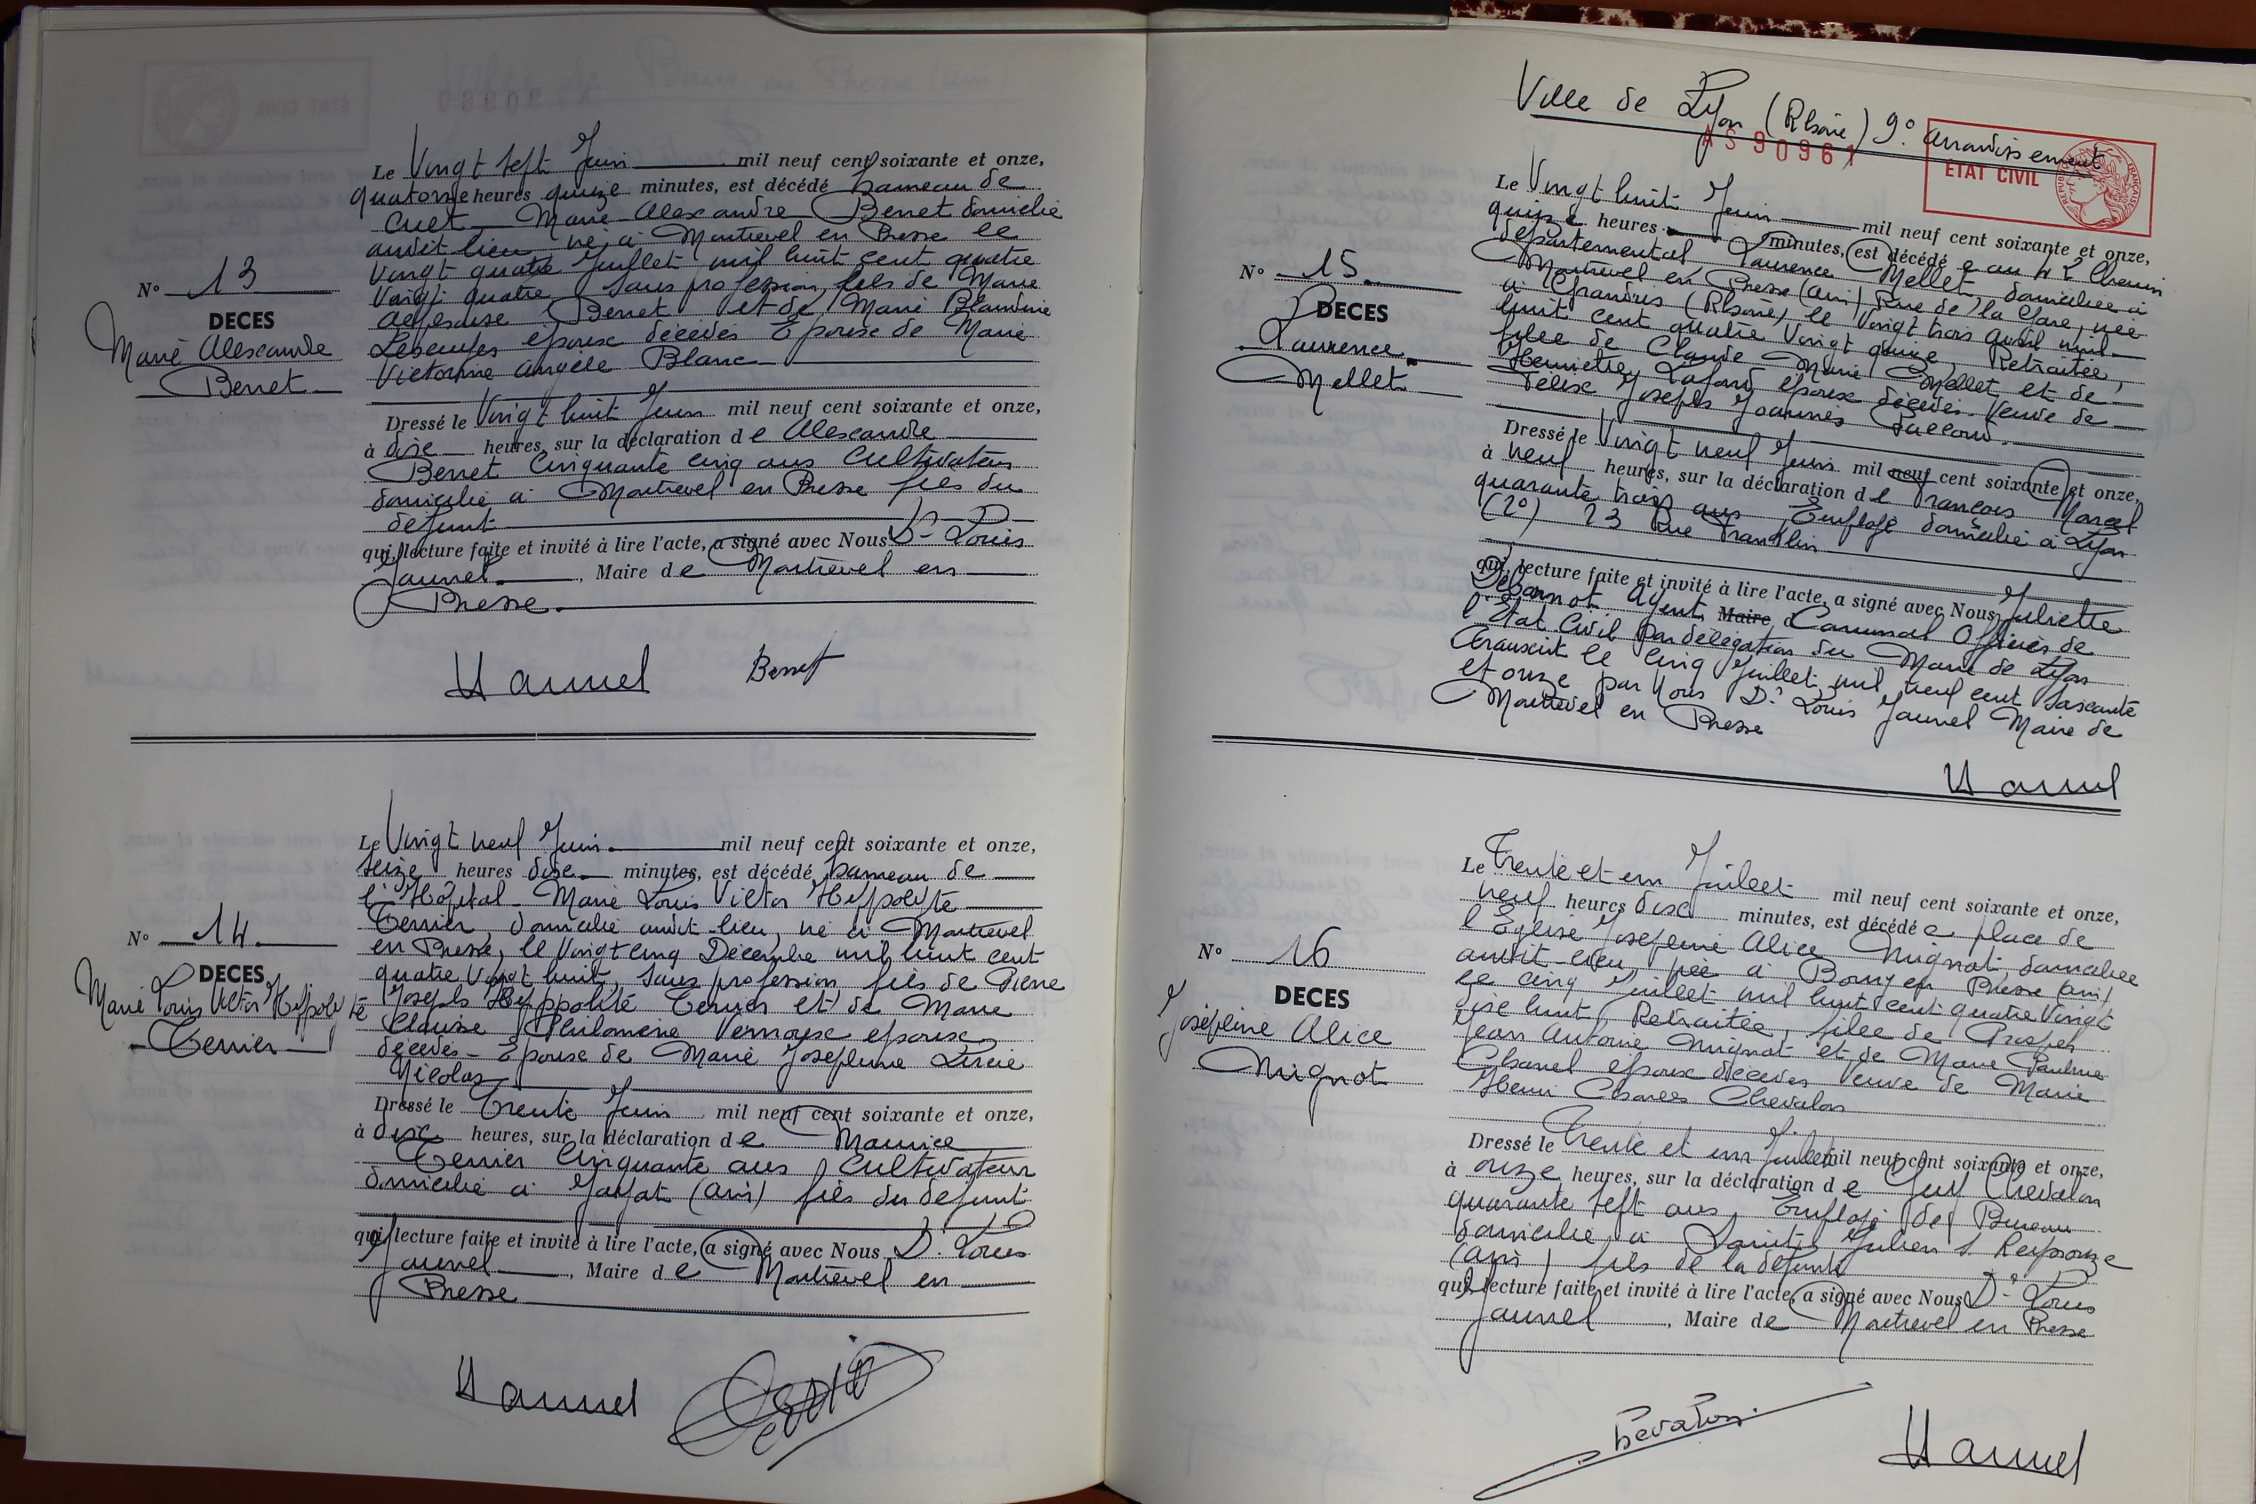 Le Vingt sept Juin mil neuf cent soixante et onze,
quatorze heures quinze minutes, est décédé hameau de
Cuet Marie Alexandre Berret domicilié
audit lieu, né à Montrevel en Bresse le
Vingt quatre Juillet mil huit cent quatre
Vingt quatre, sans profession, fils de Marie
Berret et de Marie Blandine
époux décédés Epoux de Marie
Victorine Angèle Blanc
N° 13
DECES
Marie Alexandre
Berret
Dressé le Vingt huit Juin mil neuf cent soixante et onze,
à dix heures, sur la déclaration de Alexandre
Berret Cinquante cinq ans Cultivateur
domicilié à Montrevel en Bresse fils du
défunt
qui, lecture faite et invité à lire l'acte, a signé avec Nous Dr Louis
Jaunel, Maire de Montrevel en
Bresse.
Jaunel Berret
Le Vingt neuf Juin mil neuf cent soixante et onze,
seize heures dix minutes, est décédé hameau de
l'Hôpital Marie Louis Victor Hyppolyte
Terrier, domicilié audit lieu, né à Montrevel
en Bresse, le Vingt cinq Décembre mil huit cent
quatre Vingt huit, sans profession fils de Pierre
Joseph Hyppolite Terrier et de Marie
Philomène Vernoux époux
décédés Epoux de Marie Joséphine Lucie
Nicolas
N° 14
DECES
Marie Louis Victor Hyppolyte
Terrier
Dressé le Trente Juin mil neuf cent soixante et onze,
à dix heures, sur la déclaration de Maurice
Terrier Cinquante ans Cultivateur
domicilié à Jayat (Ain) fils du défunt
qui, lecture faite et invité à lire l'acte, a signé avec Nous Dr Louis
Jaunel, Maire de Montrevel en
Bresse
Jaunel Terrier
Ville de Lyon (Rhône) 9° arrondissement
AS90961
ETAT CIVIL
Le Vingt huit Juin mil neuf cent soixante et onze,
quinze heures minutes, est décédée au 42 Chemin
départemental Laurence Mellet, domiciliée à
Montrevel en Bresse (Ain) Rue de la Gare, née
à Grandris (Rhône) le Vingt trois Avril mil
huit cent quatre Vingt quinze, Retraitée,
fille de Claude Marie Mellet et de
Henriette Lafond époux décédés. Veuve de
Félix Joseph Joannès
N° 15
DECES
Laurence
Mellet
Dressé le Vingt neuf Juin mil neuf cent soixante et onze,
à neuf heures, sur la déclaration de François Marcel
quarante trois ans, Employé domicilié à Lyon
(2°) 23 Rue Franklin
qui, lecture faite et invité à lire l'acte, a signé avec Nous Juliette
Agent Maire Communal Officier de
l'Etat Civil par délégation du Maire de Lyon
Transcrit le Cinq Juillet mil neuf cent soixante
et onze par Nous Dr Louis Jaunel Maire de
Montrevel en Bresse
Jaunel
Le Trente et un Juillet mil neuf cent soixante et onze,
neuf heures dix minutes, est décédée place de
l'Eglise Joséphine Alice Mignot, domiciliée
audit lieu, née à Bourg en Bresse (Ain)
le cinq Juillet mil huit cent quatre Vingt
dix huit, Retraitée, fille de Prosper
Jean Antoine Mignot et de Marie Pauline
Chanel époux décédés Veuve de Marie
Henri Charles Chevalon
N° 16
DECES
Joséphine Alice
Mignot
Dressé le Trente et un Juillet mil neuf cent soixante et onze,
à onze heures, sur la déclaration de Guy Chevalon
quarante sept ans, Employé de Bureau
domicilié à Saint Julien s/ Reyssouze
(Ain) fils de la défunte
qui, lecture faite et invité à lire l'acte, a signé avec Nous Dr Louis
Jaunel, Maire de Montrevel en Bresse
Chevalon Jaunel